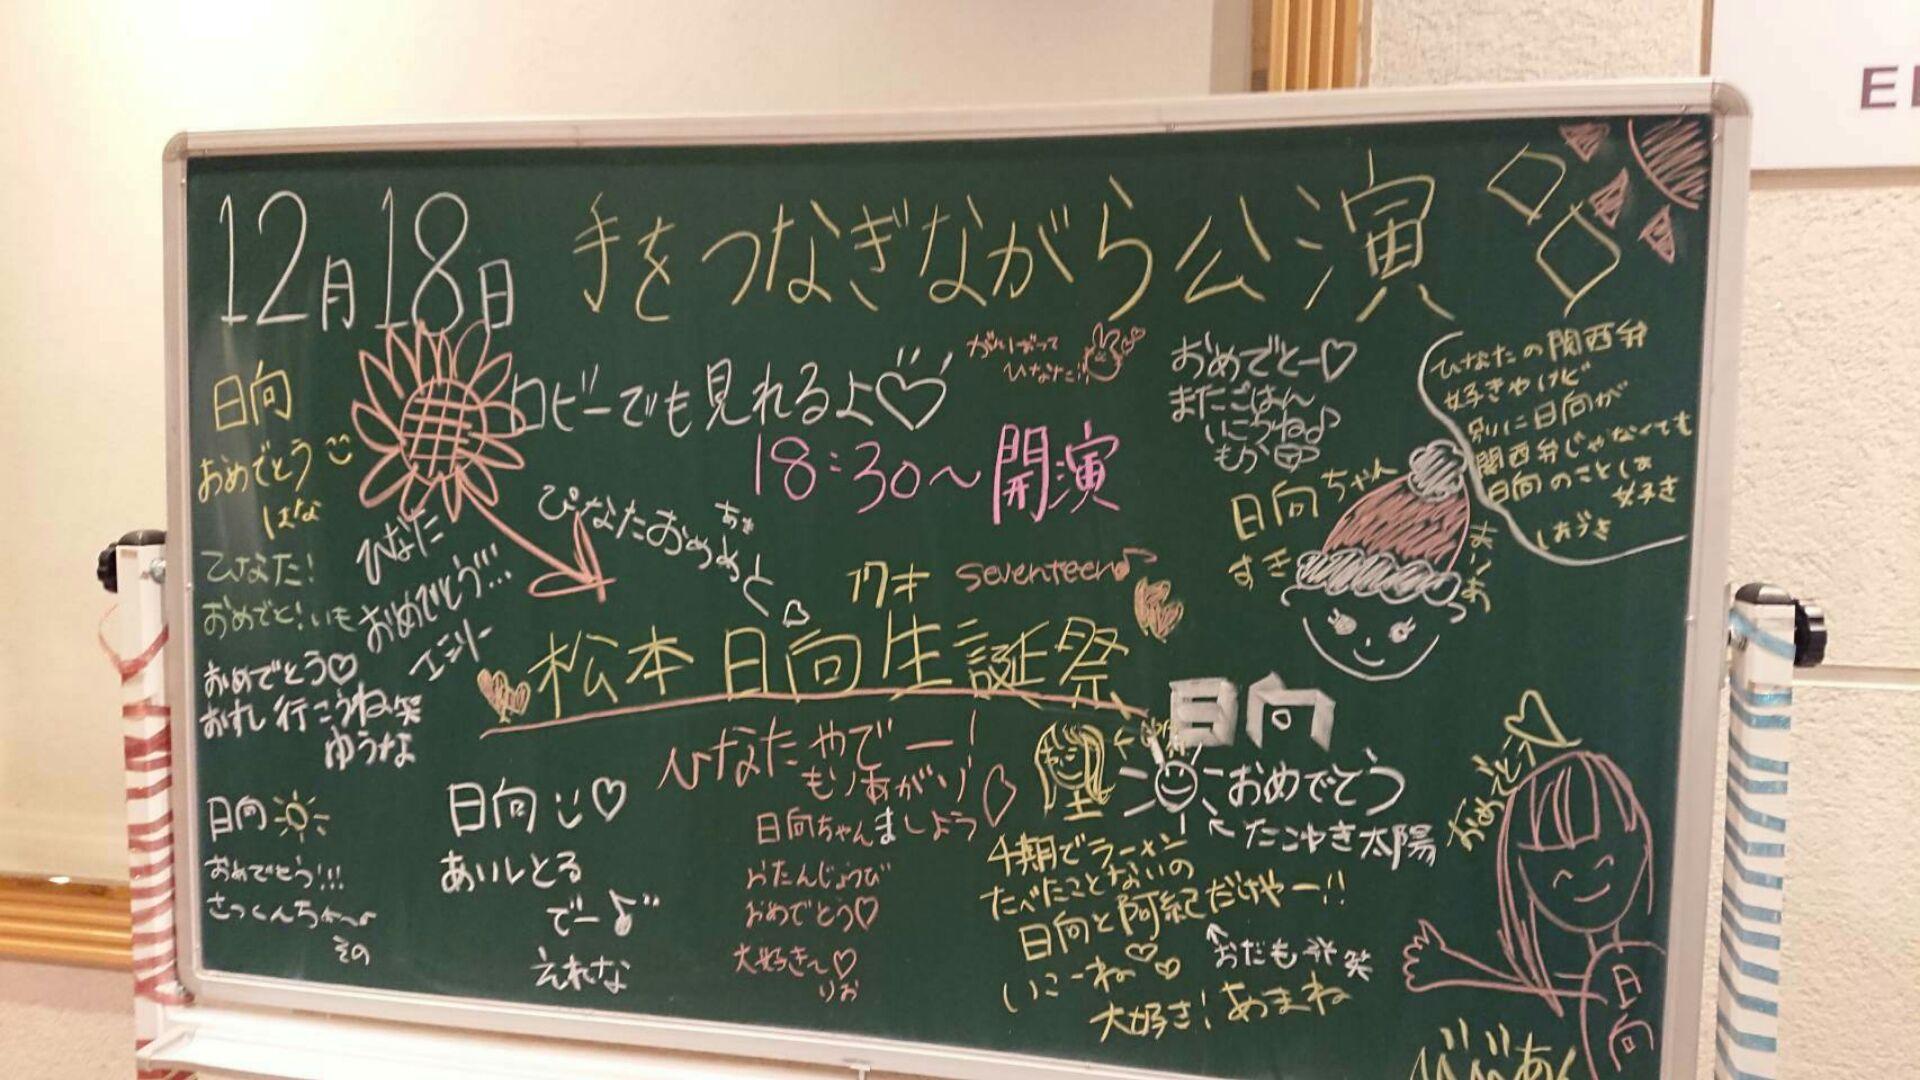 12月18日 手をつなぎながら公演
ロビーでも見れるよ♡
18:30~開演
がんばって
ひなた!!
おめでとー♡
またごはん
いこうね♪
もか
ひなたの関西弁
好きやけど
別に日向が
関西弁じゃなくても
日向のことしぉ
好き
しおつき
日向ちゃん
すき
まりあ
日向
おめでとう
はな
ひなた!
おめでと!いも
ひなた
おめでとう!!...
エミリー
ぴなたおめめと
あき
17才 seventeen♪
松本日向生誕祭
おめでとう♡
おすし行こうね笑
ゆうな
日向
おめでとう!!!
その
日向♡
あいしとる
でー♪
えれな
ひなたやでー!
もりあがり
ましょう
日向ちゃん
おたんじょうび
おめでとう♡
大好き~♡
りお
日向
おめでとう
←たこやき太陽
4期でラーメン
たべたことないの
日向と阿紀だけやー!!
いこーね♡♡
大好き!あまね
おめでとう♡
日向